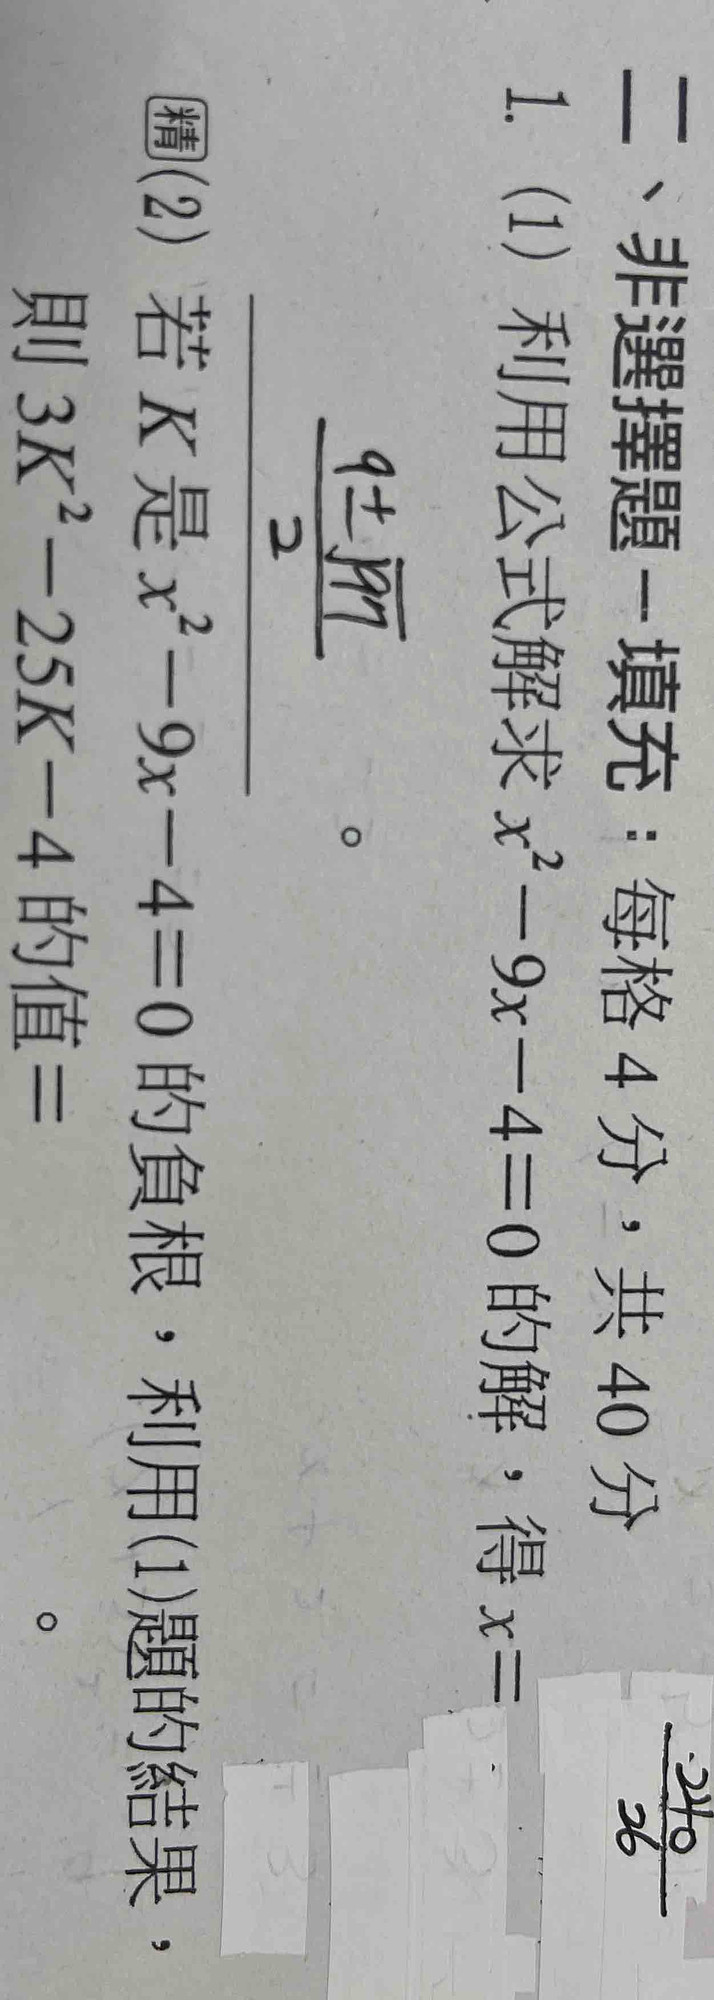 二、非選擇題－填充：每格 4 分，共 40 分
1. (1) 利用公式解求 x²－9x－4＝0 的解，得 x＝
9±√97
2
。
精 (2) 若 K 是 x²－9x－4＝0 的負根，利用(1)題的結果，
則 3K²－25K－4 的值＝
。